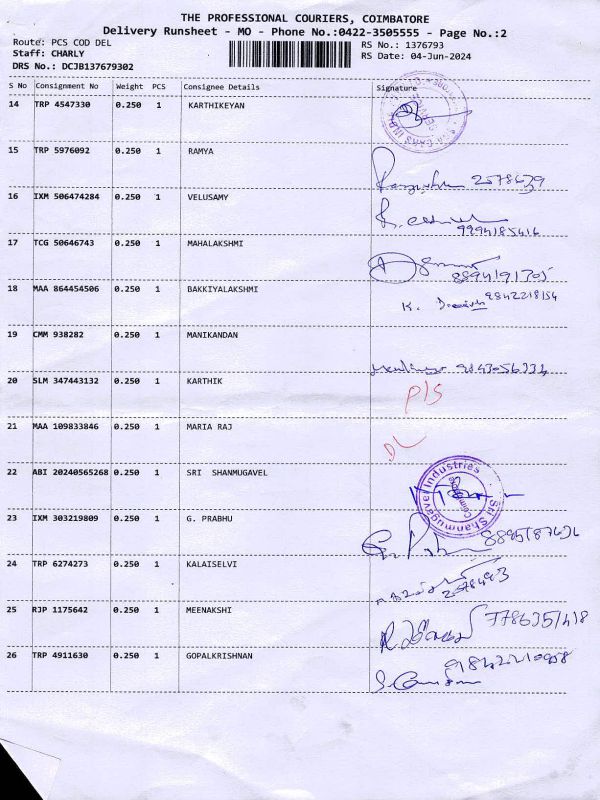 THE PROFESSIONAL COURIERS, COIMBATORE
Delivery Runsheet - MO - Phone No.:0422-3505555 - Page No.:2
Route: PCS COD DEL RS No.: 1376793
Staff: CHARLY RS Date: 04-Jun-2024
DRS No.: DCJB137679302
S No Consignment No Weight PCS Consignee Details Signature
14 TRP 4547330 0.250 1 KARTHIKEYAN
15 TRP 5976092 0.250 1 RAMYA
2578639
16 IXM 506474284 0.250 1 VELUSAMY
9994185416
17 TCG 50646743 0.250 1 MAHALAKSHMI
18 MAA 864454506 0.250 1 BAKKIYALAKSHMI
K. 9842218154
19 CMM 938282 0.250 1 MANIKANDAN
20 SLM 347443132 0.250 1 KARTHIK
P/S
21 MAA 109833846 0.250 1 MARIA RAJ
DL
22 ABI 20240565268 0.250 1 SRI SHANMUGAVEL
Sri Shanmugavel Industries
23 IXM 303219809 0.250 1 G. PRABHU
24 TRP 6274273 0.250 1 KALAISELVI
25 RJP 1175642 0.250 1 MEENAKSHI
26 TRP 4911630 0.250 1 GOPALKRISHNAN